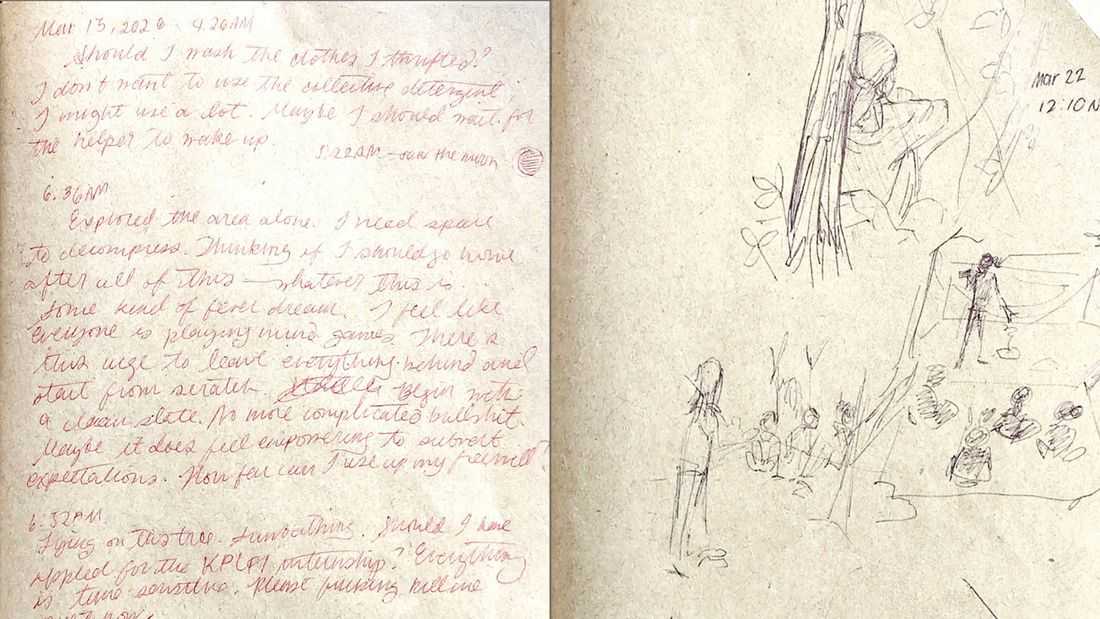 Mar 13, 2026 - 4.26AM
Should I wash the clothes I thrifted?
I don't want to use the collective detergent,
I might use a lot. Maybe I should wait for
the helper to wake up.
5:22AM - saw the moon
6.36AM
Explored the area alone. I need space
to decompress. Thinking if I should go home
after all of this — whatever this is
some kind of fever dream. I feel like
everyone is playing mind games. There's
this urge to leave everything behind and
start from scratch. Begin with
a clean slate. No more complicated bullshit.
Maybe it does feel empowering to subvert
expectations. How far can I use up my freewill?
6:52AM
Lying on this tree. Sunbathing. Should I have
applied for the internship? Everything
is time sensitive. Please fucking kill me
Mar 22
12:10N